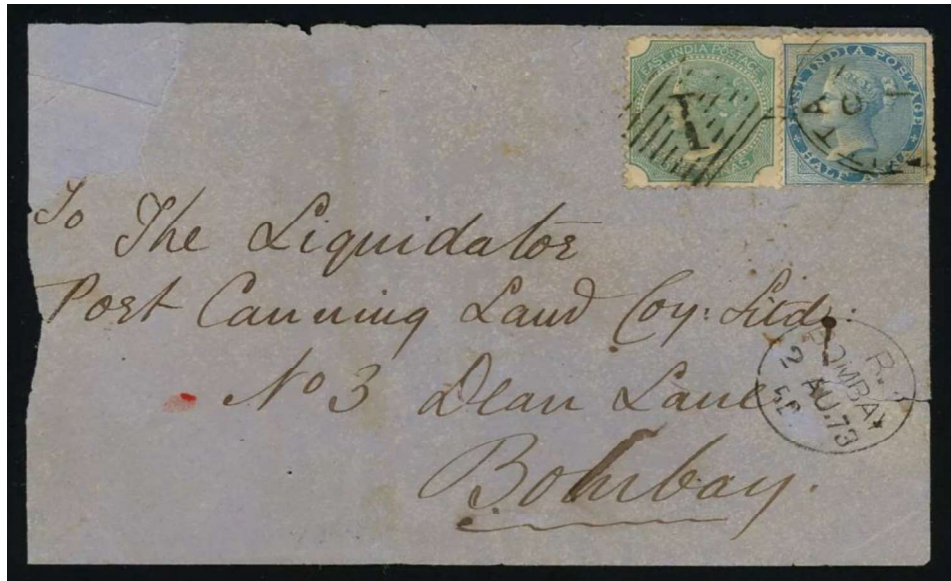 EAST INDIA POSTAGE
EAST INDIA POSTAGE
HALF
1
To The Liquidator
Port Canning Land Coy: Litd:
No 3 Dean Lane
Bombay.
R.
BOMBAY
2 AU.73